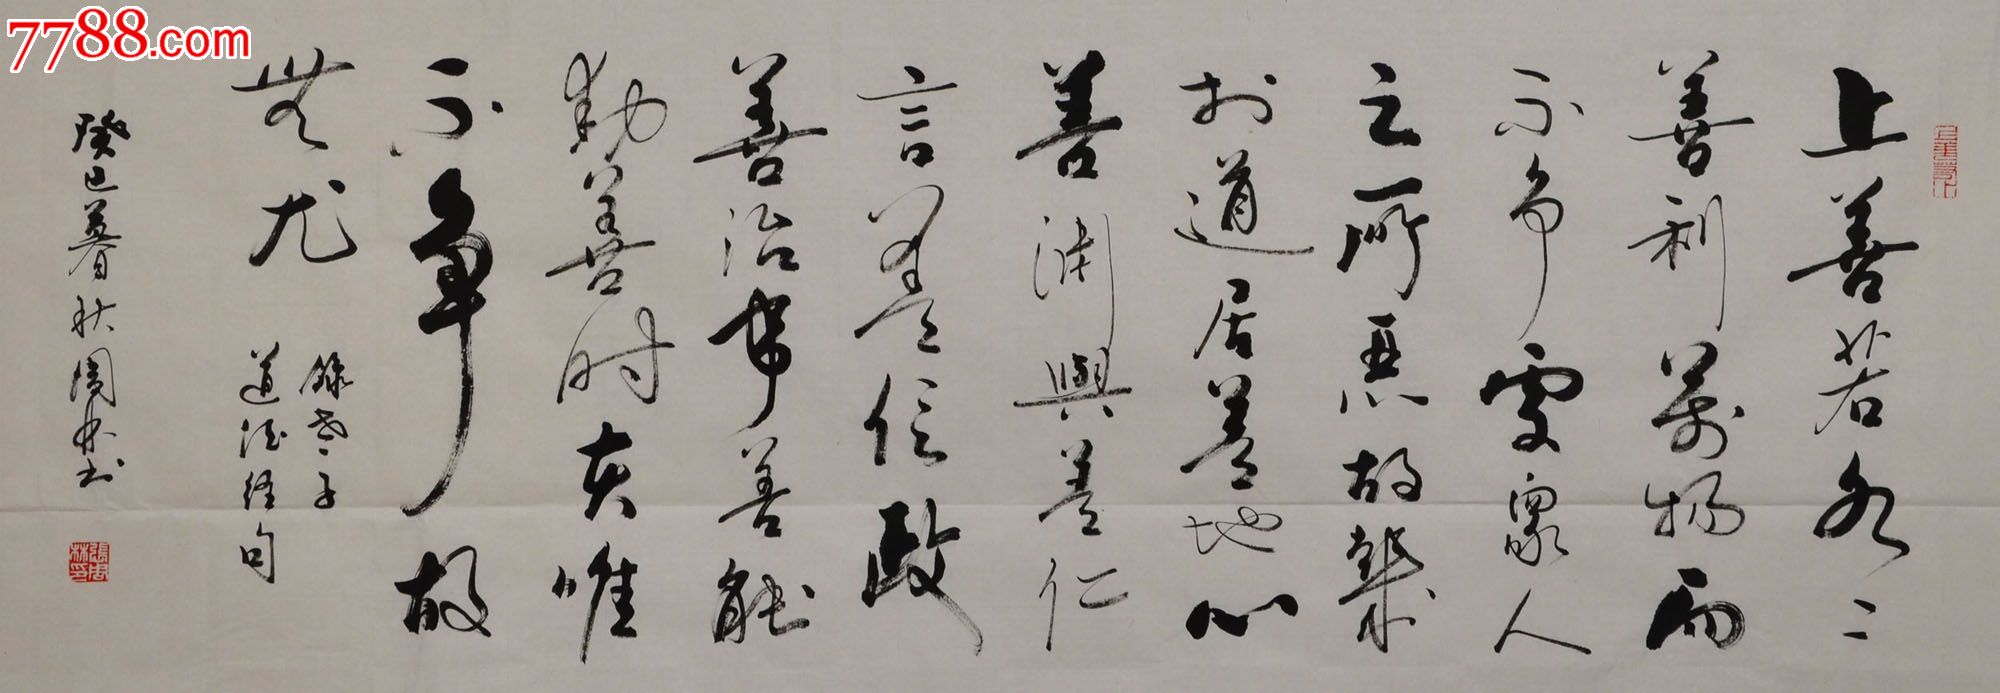 上善若水〻
善利萬物而
不争處眾人
之所惡故幾
於道居善地心
善渊與善仁
言善信政
善治事善能
動善时夫唯
不争故
無尤
錄老子
道德經句
癸巳暮秋周林书
張周林印
7788.com